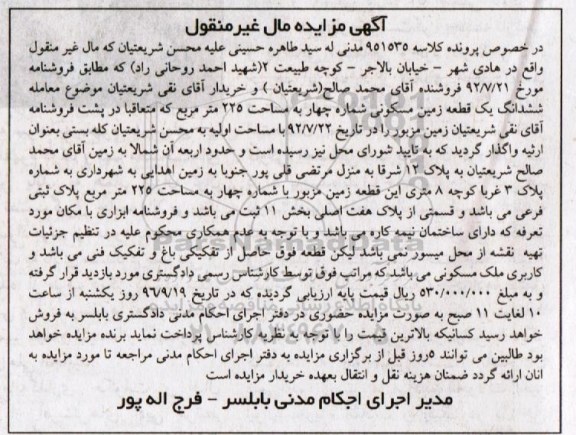 آگهی مزایده مال غیرمنقول
در خصوص پرونده کلاسه ۹۵۱۵۳۵ مدنی له سید طاهره حسینی علیه محسن شریعتیان که مال غیر منقول
واقع در هادی شهر - خیابان بالاجر - کوچه طبیعت ۲(شهید احمد روحانی راد) که مطابق فروشنامه
مورخ ۹۲/۷/۲۱ فروشنده آقای محمد صالح(شریعتیان ) و خریدار آقای نقی شریعتیان موضوع معامله
ششدانگ یک قطعه زمین مسکونی شماره چهار به مساحت ۲۲۵ متر مربع که متعاقبا در پشت فروشنامه
آقای نقی شریعتیان زمین مزبور را در تاریخ ۹۲/۷/۲۲ با مساحت اولیه به محسن شریعتیان کله بستی بعنوان
ارثیه واگذار گردید که به تایید شورای محل نیز رسیده است و حدود اربعه آن شمالا به زمین آقای محمد
صالح شریعتیان به پلاک ۱۲ شرقا به منزل مرتضی قلی پور جنوبا به زمین اهدایی به شهرداری به شماره
پلاک ۳ غربا کوچه ۸ متری این قطعه زمین مزبور با شماره چهار به مساحت ۲۲۵ متر مربع پلاک ثبتی
فرعی می باشد و قسمتی از پلاک هفت اصلی بخش ۱۱ ثبت می باشد و فروشنامه ابزاری با مکان مورد
تعرفه که دارای ساختمان نیمه کاره می باشد و با توجه به عدم همکاری محکوم علیه در تنظیم جزئیات
تهیه نقشه از محل میسور نمی باشد لیکن قطعه فوق حاصل از تفکیکی باغ و تفکیک فنی می باشد و
کاربری ملک مسکونی می باشد که مراتب فوق توسط کارشناس رسمی دادگستری مورد بازدید قرار گرفته
و به مبلغ ۵۳۰/۰۰۰/۰۰۰ ریال قیمت پایه ارزیابی گردیده که در تاریخ ۹۶/۹/۱۹ روز یکشنبه از ساعت
۱۰ لغایت ۱۱ صبح به صورت مزایده حضوری در دفتر اجرای احکام مدنی دادگستری بابلسر به فروش
خواهد رسید کسانیکه بالاترین قیمت را با توجه به نظریه کارشناس پرداخت نماید برنده مزایده خواهد
بود طالبین می توانند ۵روز قبل از برگزاری مزایده به دفتر اجرای احکام مدنی مراجعه تا مورد مزایده به
انان ارائه گردد ضمنان هزینه نقل و انتقال بعهده خریدار مزایده است
مدیر اجرای احکام مدنی بابلسر - فرج اله پور
ParsNamadData